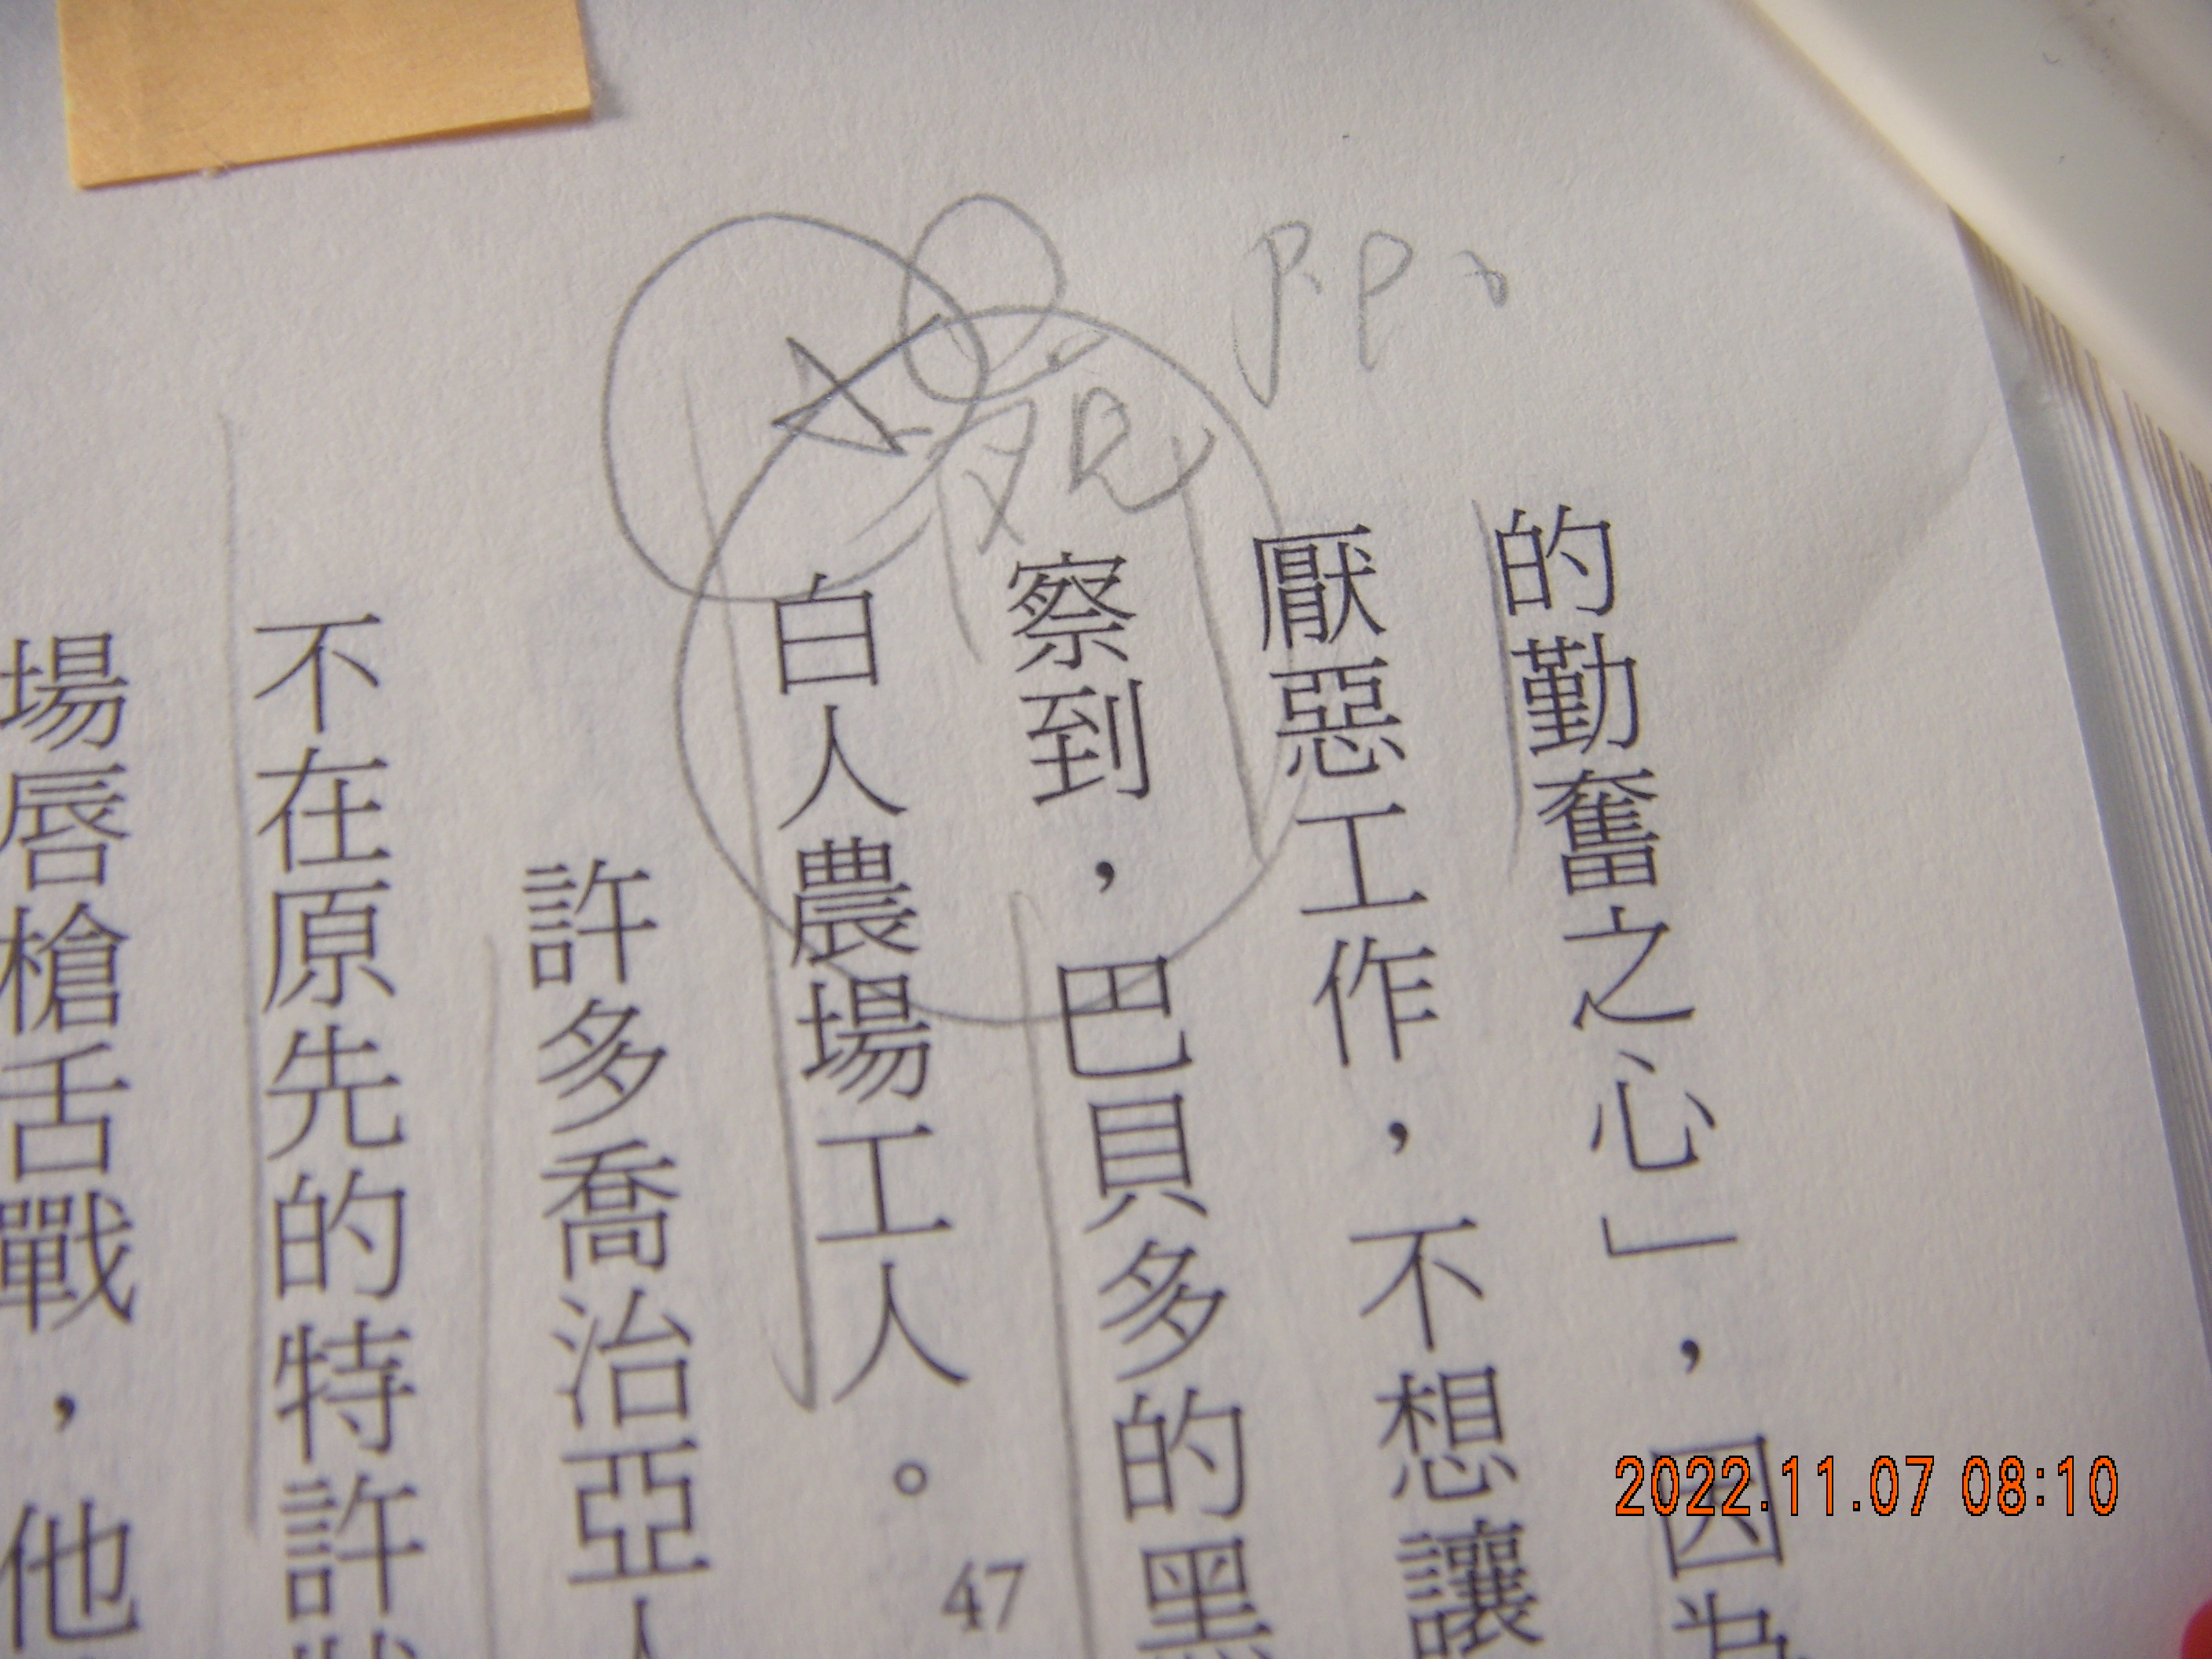 的勤奮之心」，因為
厭惡工作，不想讓
察到，巴貝多的黑
白人農場工人。47
許多喬治亞人
不在原先的特許
場唇槍舌戰，他
2022.11.07 08:10